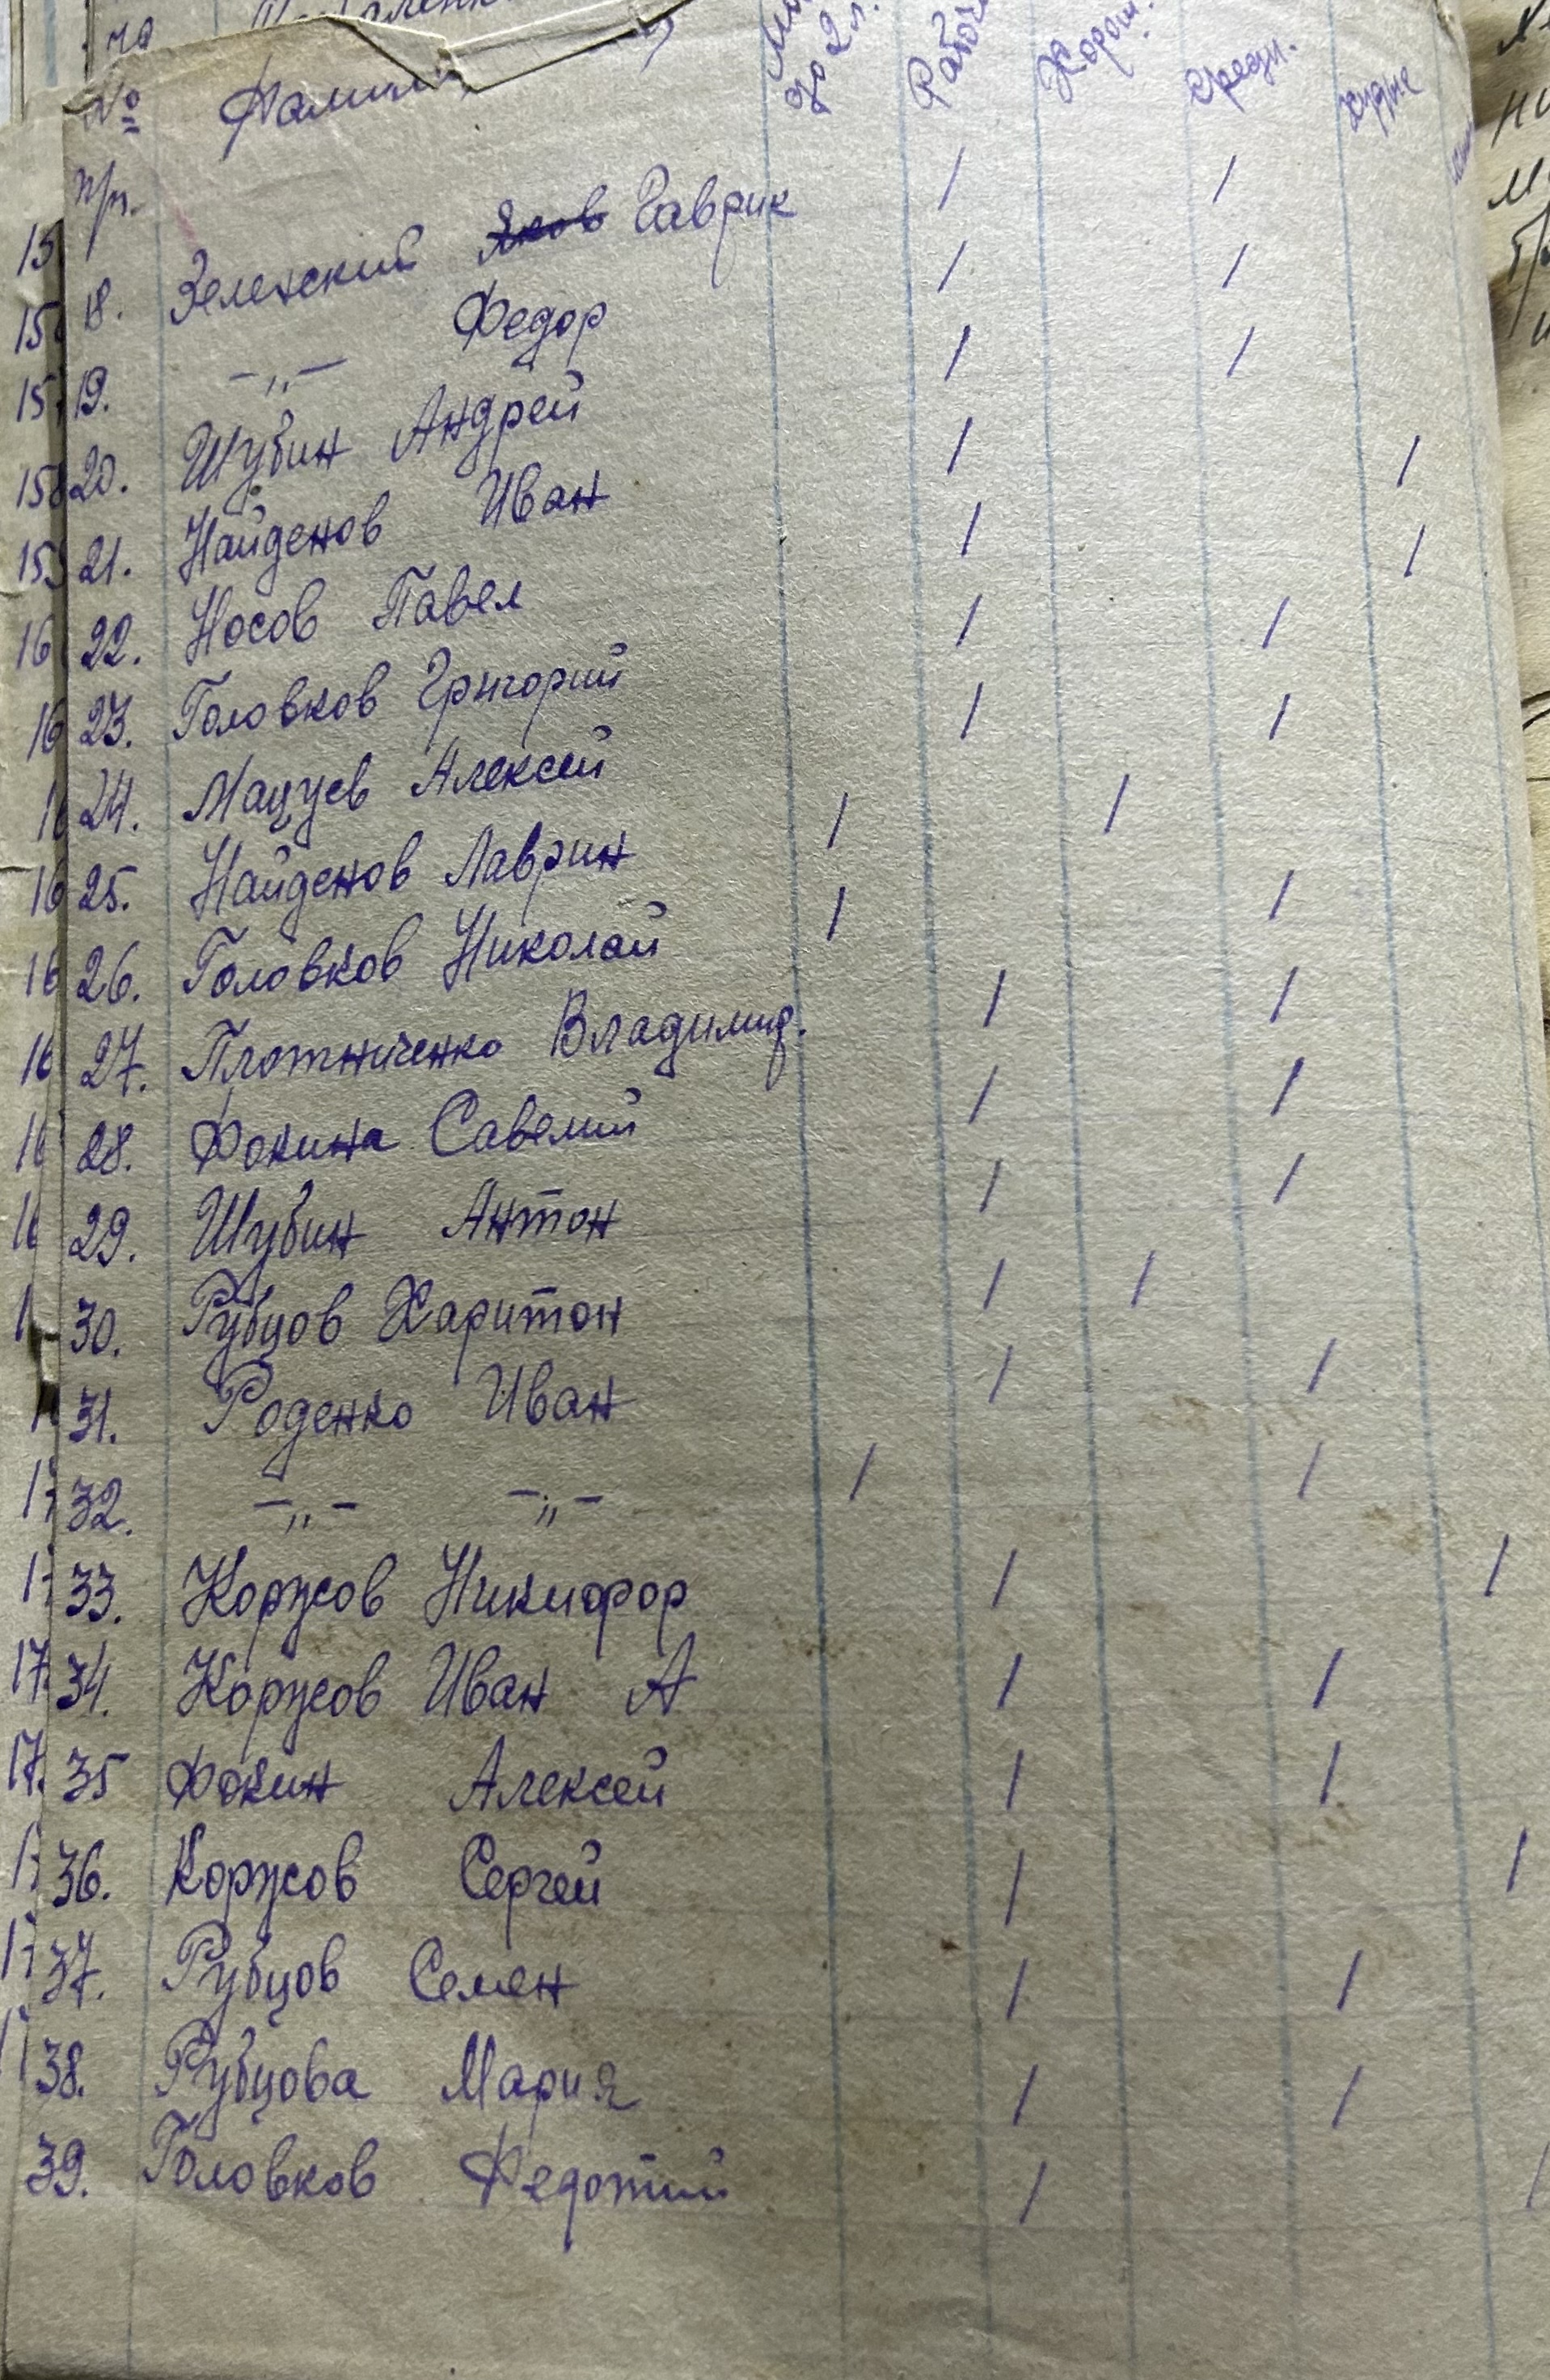 № Фамили до 2 л. Рабоч Хорош. Средн. худые
п/п.
18. Зеленский Яков Гаврик / /
19. —„— Федор / /
20. Шубин Андрей / /
21. Найденов Иван / /
22. Носов Павел / /
23. Головков Григорий / /
24. Мацуев Алексей / /
25. Найденов Лаврин / /
26. Головков Николай / /
27. Плотниченко Владимир. / /
28. Фокина Савелий / /
29. Шубин Антон / /
30. Рубцов Харитон / /
31. Роденко Иван / /
32. —„— —„— / /
33. Коржов Никифор / /
34. Коржов Иван А / /
35 Фокин Алексей / /
36. Коржов Сергей / /
37. Рубцов Семен / /
38. Рубцова Мария / /
39. Головков Федотий / /